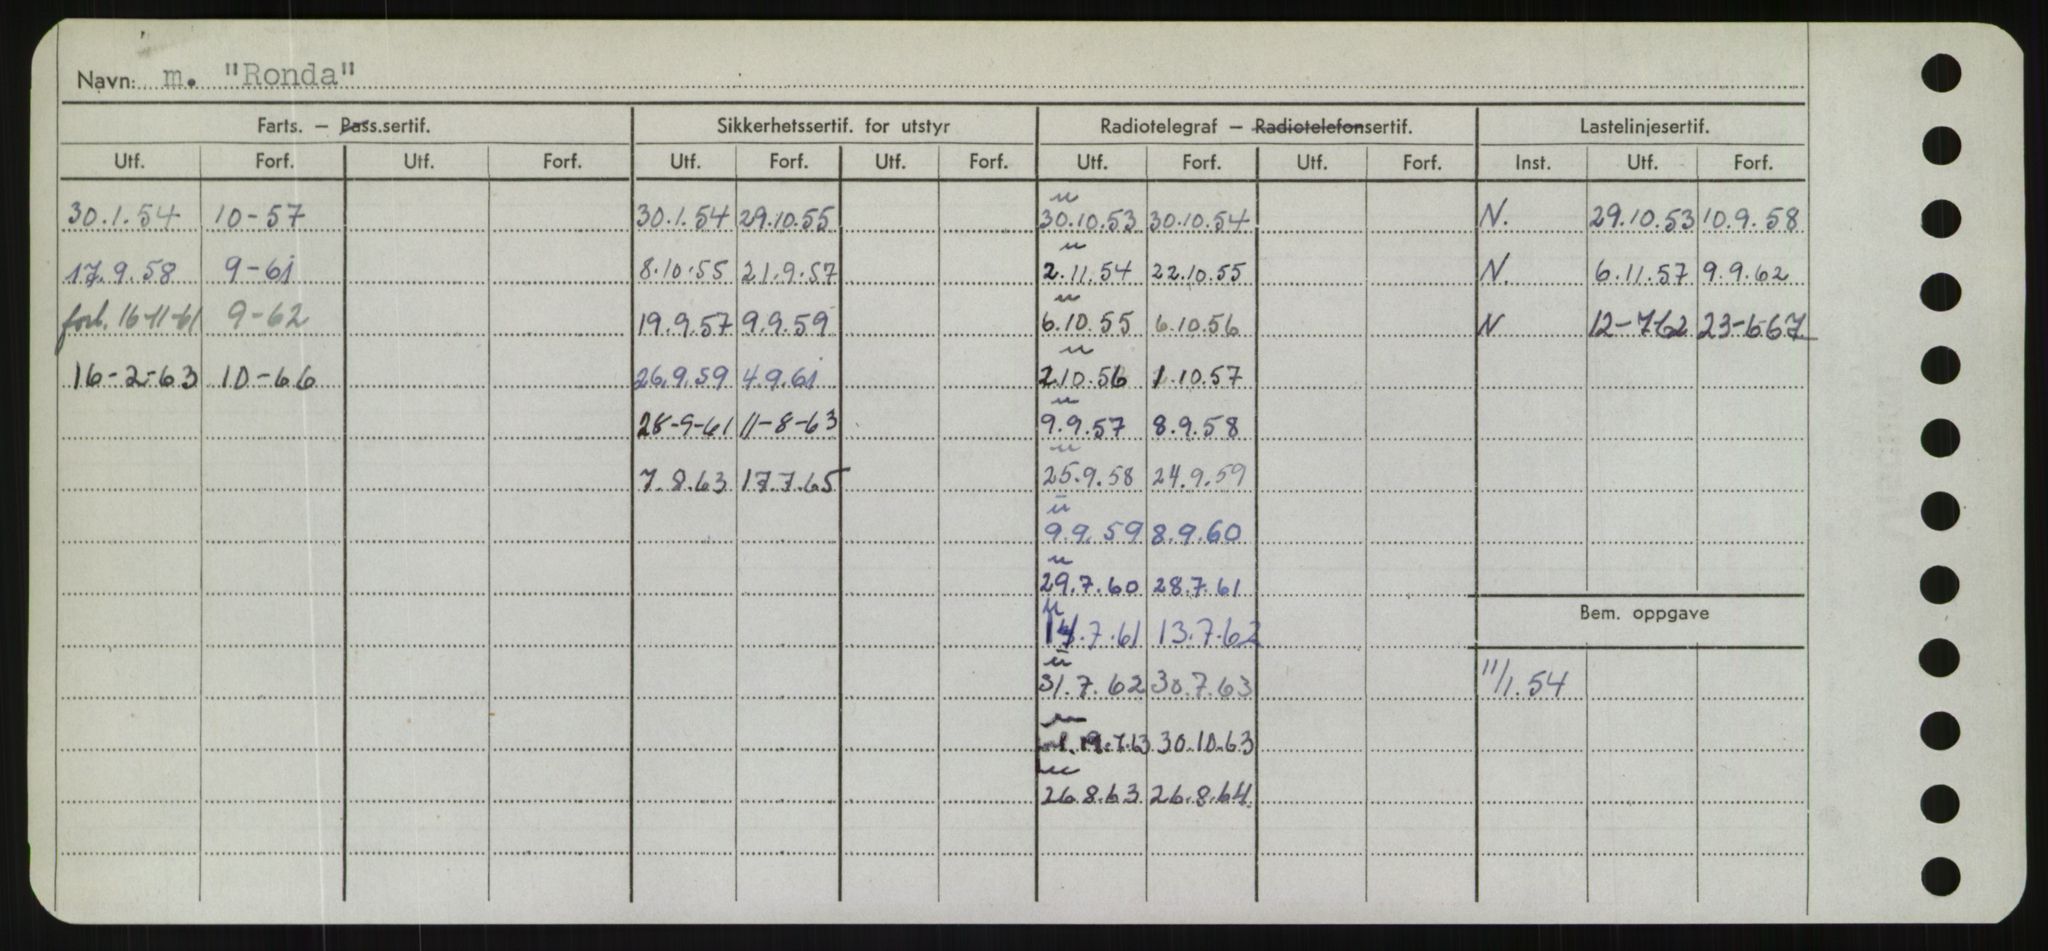 Navn: m. "Ronda"
Farts. — Pass.sertif. Sikkerhetssertif. for utstyr Radiotelegraf — Radiotelefonsertif. Lastelinjesertif.
Utf. Forf. Utf. Forf. Utf. Forf. Utf. Forf. Utf. Forf. Utf. Forf. Inst. Utf. Forf.
u
30.1.54 10-57 30.1.54 29.10.55 30.10.53 30.10.54 N. 29.10.53 10.9.58
u
17.9.58 9-61 8.10.55 21.9.57 2.11.54 22.10.55 N. 6.11.57 9.9.62
u
forl. 16-11-61 9-62 19.9.57 9.9.59 6.10.55 6.10.56 N 12-7-62 23-6-67
u
16-2-63 10-66 26.9.59 4.9.61 2.10.56 1.10.57
u
28-9-61 11-8-63 9.9.57 8.9.58
u
7.8.63 17.7.65 25.9.58 24.9.59
u
9.9.59 8.9.60
u
29.7.60 28.7.61
u
14.7.61 13.7.62
Bem. oppgave
u
31.7.62 30.7.63 11/1.54
u
19.7.63 30.10.63
u
26.8.63 26.8.64